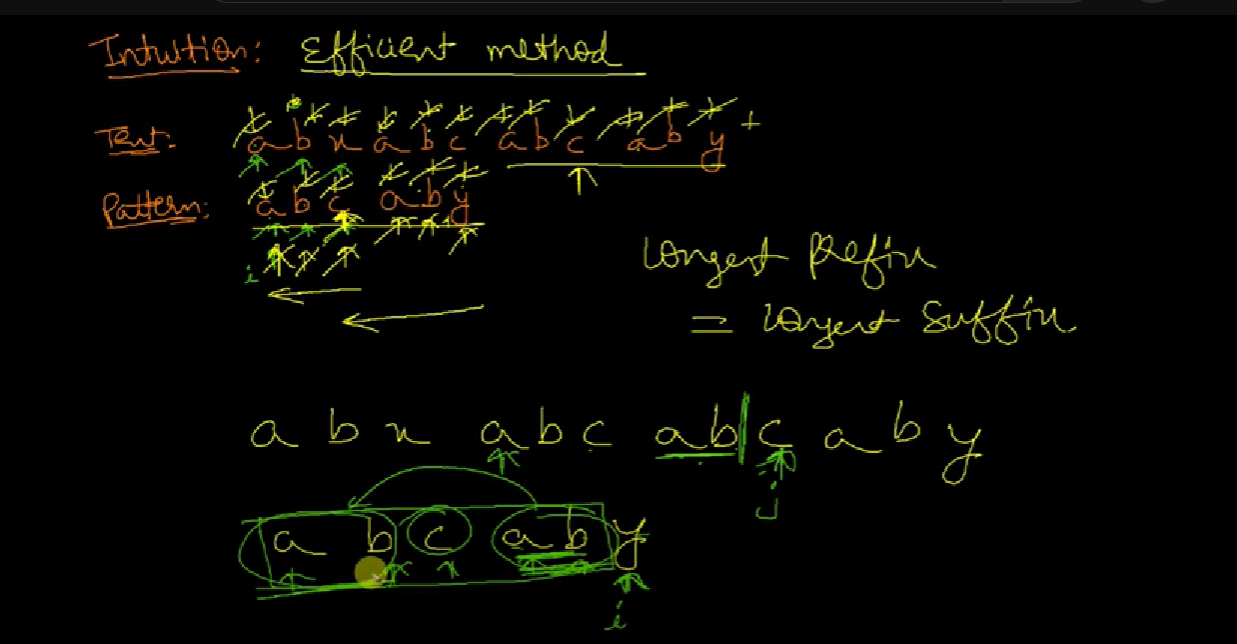 Intuition: Efficient method
Text: a b x a b c a b c a b y
Pattern: a b c a b y
i
Longest Prefix
= Longest Suffix
a b x a b c a b | c a b y
j
a b c a b y
i